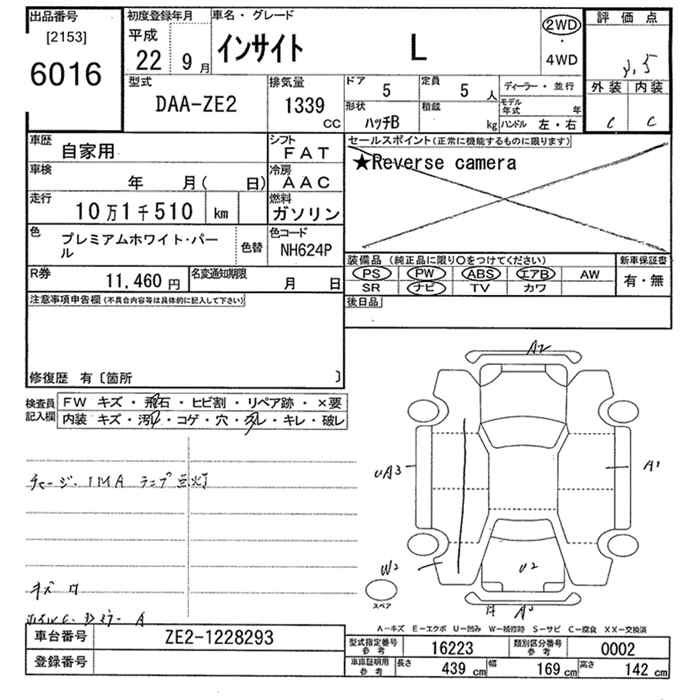 出品番号
[2153]
6016
初度登録年月
平成
22 9月
車名・グレード
インサイト L
2WD
・
4WD
評価点
外装 内装
C C
型式
DAA-ZE2
排気量
1339
CC
ドア
5
定員
5人
形状
ハッチB
積載
kg
ディーラー・並行
モデル年式 年
ハンドル 左・右
車歴
自家用
シフト
FAT
車検
年 月( 日)
冷房
AAC
走行
10万1千510 km
燃料
ガソリン
色
プレミアムホワイト・パール
色替
色コード
NH624P
R券
11,460円
名変通知期限
月 日
セールスポイント(正常に機能するものに限ります)
★Reverse camera
装備品(純正品に限り○をつけてください)
PS PW ABS エアB AW
SR ナビ TV カワ
新車保証書
有・無
後日品
注意事項申告欄(不具合内容等は具体的に記入して下さい)
修復歴 有〔箇所 〕
検査員
記入欄
FW キズ・飛石・ヒビ割・リペア跡・×要
内装 キズ・汚れ・コゲ・穴・スレ・キレ・破レ
チャージ. IMA ランプ点灯
キズ
A2
UA3
A1
W2
U2
スペア
A-キズ E-エクボ U-凹み W-補修跡 S-サビ C-腐食 XX-交換済
車台番号
ZE2-1228293
登録番号
型式指定番号
参考
16223
類別区分番号
参考
0002
車庫証明用
参考
長さ 439cm
幅 169cm
高さ 142cm